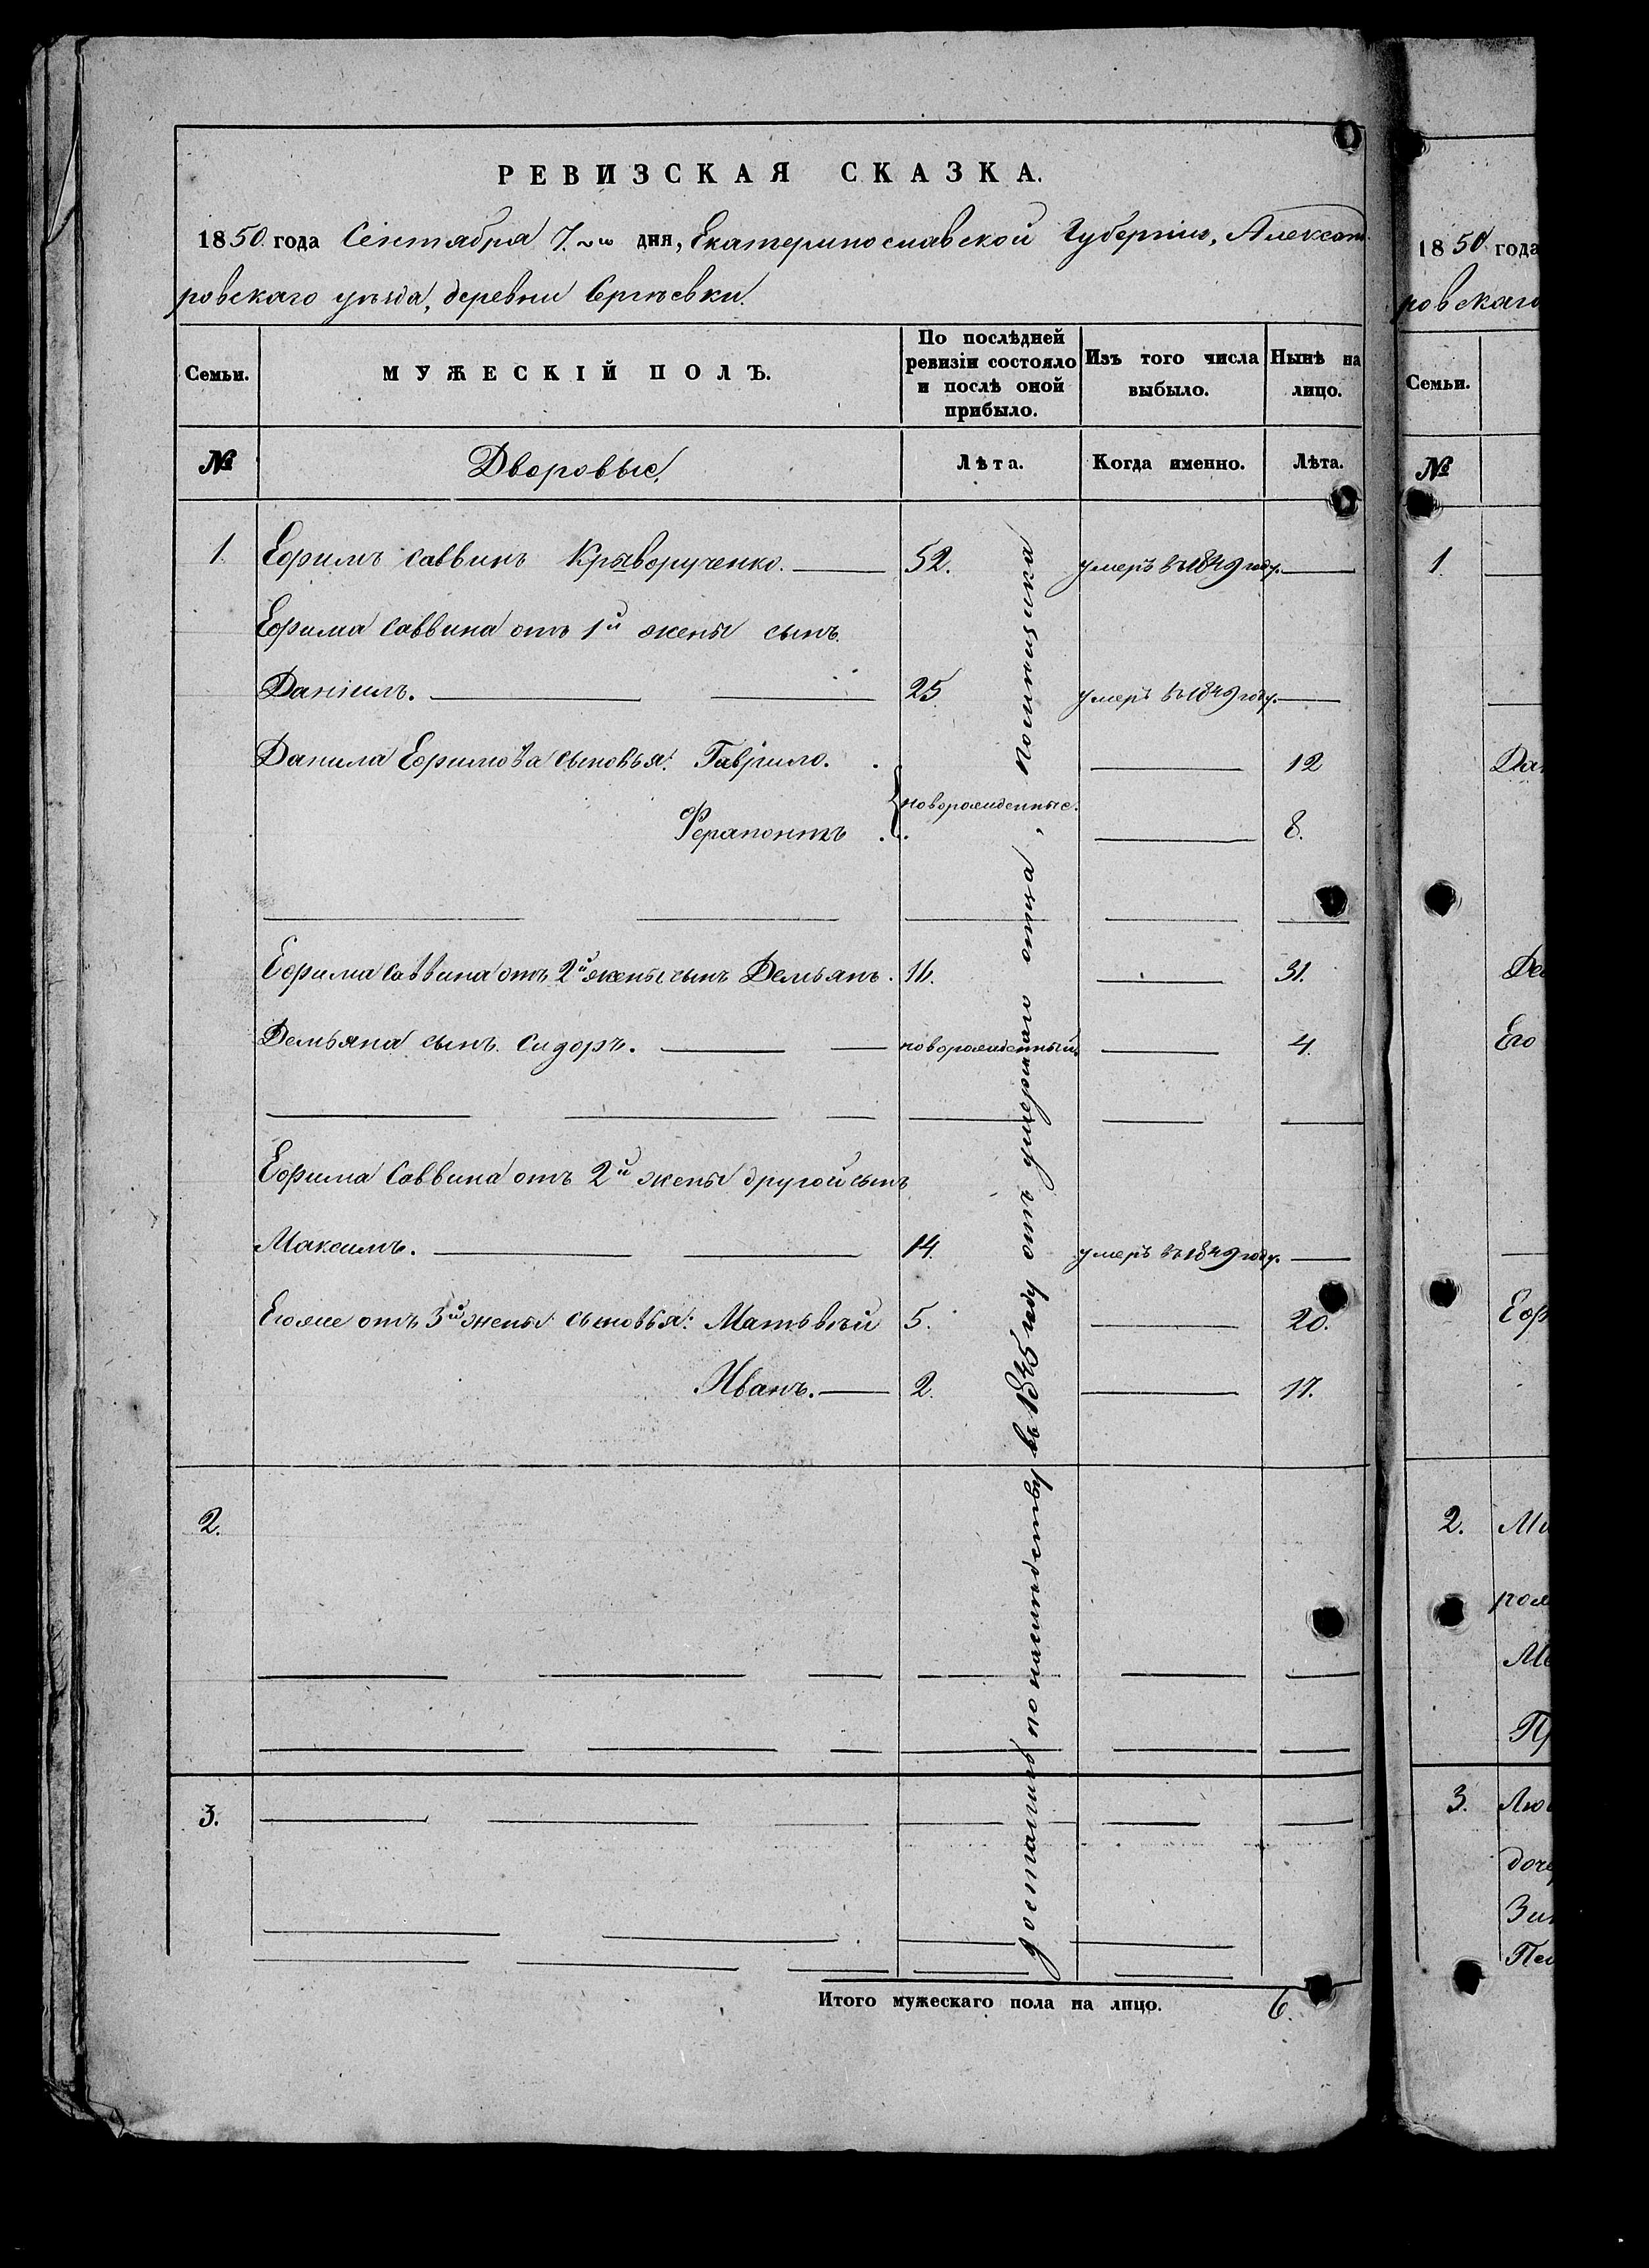 РЕВИЗСКАЯ СКАЗКА.
1850 года Сентября 7.го дня, Екатеринославской Губерніи, Александ
ровскаго уѣзда, деревни Сергѣевки.
Семьи. МУЖЕСКІЙ ПОЛЪ. По послѣдней ревизіи состояло и послѣ оной прибыло. Изъ того числа выбыло. Нынѣ на лицо.
№ Дворовые. Лѣта. Когда именно. Лѣта.
1. Ефимъ Саввинъ Криворученко. 52. умеръ въ 1849 году.
Ефима Саввина отъ 1й жены сынъ
Даніилъ. 25 умеръ въ 1849 году.
Данила Ефимова сыновья: Гаврило. 12
новорожденные.
Ферапонтъ 8.
Ефима Саввина отъ 2й жены сынъ Демьянъ. 16. 31.
Демьяна сынъ Сидоръ. новорожденный 4.
Ефима Саввина отъ 2й жены другой сынъ
Максимъ. 14. умеръ въ 1849 году.
Егоже отъ 3й жены сыновья: Матьвѣй 5. 20.
Иванъ. 2. 17.
2.
3.
достались по наслѣдству въ 1845 году отъ умершаго отца, помѣщика
Итого мужескаго пола на лицо. 6.
1850 года
ровскаго
Семьи.
№
1.
Дан
Де
Его
Еф
2. Ми
Ме
Пр
3. Лю
доче
Зин
Пел